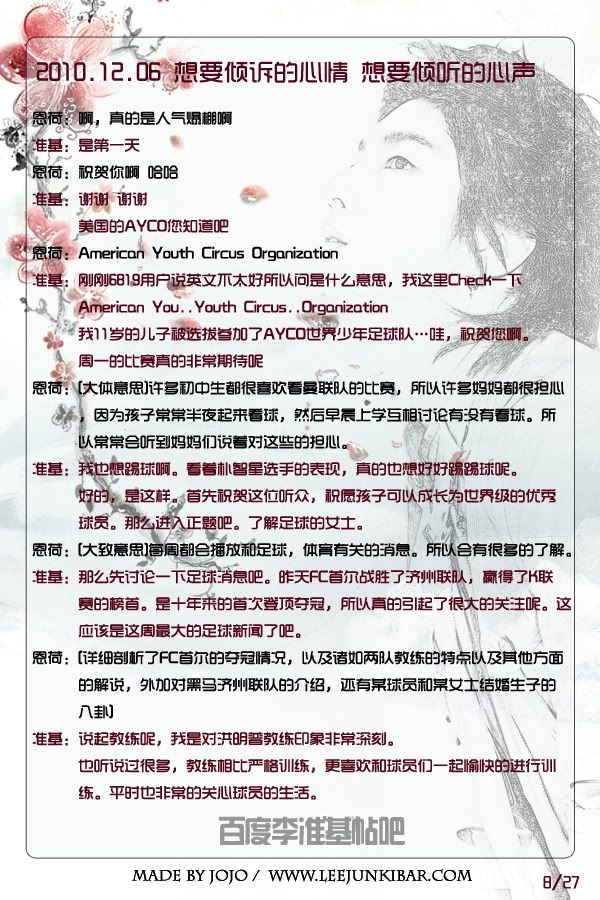 2010.12.06 想要倾诉的心情 想要倾听的心声
恩荷：啊，真的是人气爆棚啊
准基：是第一天
恩荷：祝贺你啊 哈哈
准基：谢谢 谢谢
美国的AYCO您知道吧
恩荷：American Youth Circus Organization
准基：刚刚6819用户说英文不太好所以问是什么意思，我这里Check一下
American You..Youth Circus..Organization
我11岁的儿子被选拔参加了AYCO世界少年足球队…哇，祝贺您啊。
周一的比赛真的非常期待呢
恩荷：[大体意思]许多初中生都很喜欢看曼联队的比赛，所以许多妈妈都很担心
，因为孩子常常半夜起来看球，然后早晨上学互相讨论有没有看球。所
以常常会听到妈妈们说着对这些的担心。
准基：我也想踢球啊。看着朴智星选手的表现，真的也想好好踢踢球呢。
好的，是这样。首先祝贺这位听众，祝愿孩子可以成长为世界级的优秀
球员。那么进入正题吧。了解足球的女士。
恩荷：[大致意思]每周都会播放和足球，体育有关的消息。所以会有很多的了解。
准基：那么先讨论一下足球消息吧。昨天FC首尔战胜了济州联队，赢得了K联
赛的榜首。是十年来的首次登顶夺冠，所以真的引起了很大的关注呢。这
应该是这周最大的足球新闻了吧。
恩荷：[详细剖析了FC首尔的夺冠情况，以及诸如两队教练的特点以及其他方面
的解说，外加对黑马济州联队的介绍，还有某球员和某女士结婚生子的
八卦]
准基：说起教练呢，我是对洪明普教练印象非常深刻。
也听说过很多，教练相比严格训练，更喜欢和球员们一起愉快的进行训
练。平时也非常的关心球员的生活。
百度李准基帖吧
MADE BY JOJO / WWW.LEEJUNKIBAR.COM
8/27